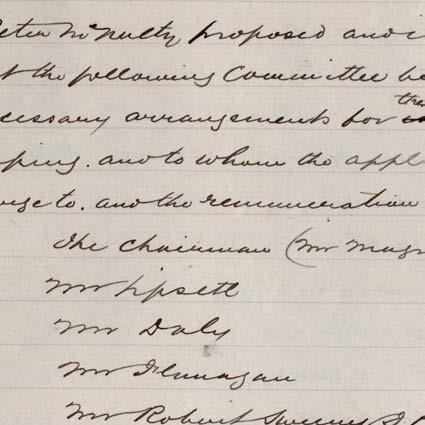 Peter McNulty proposed and
the following Committee be
cessary arrangements for the
ping. and to whom the appl
to. and the remuneration
The Chairman (Mr Mag
Mr Lipsett
Mr Daly
Mr Flanagan
Mr Robert Sweeny J.